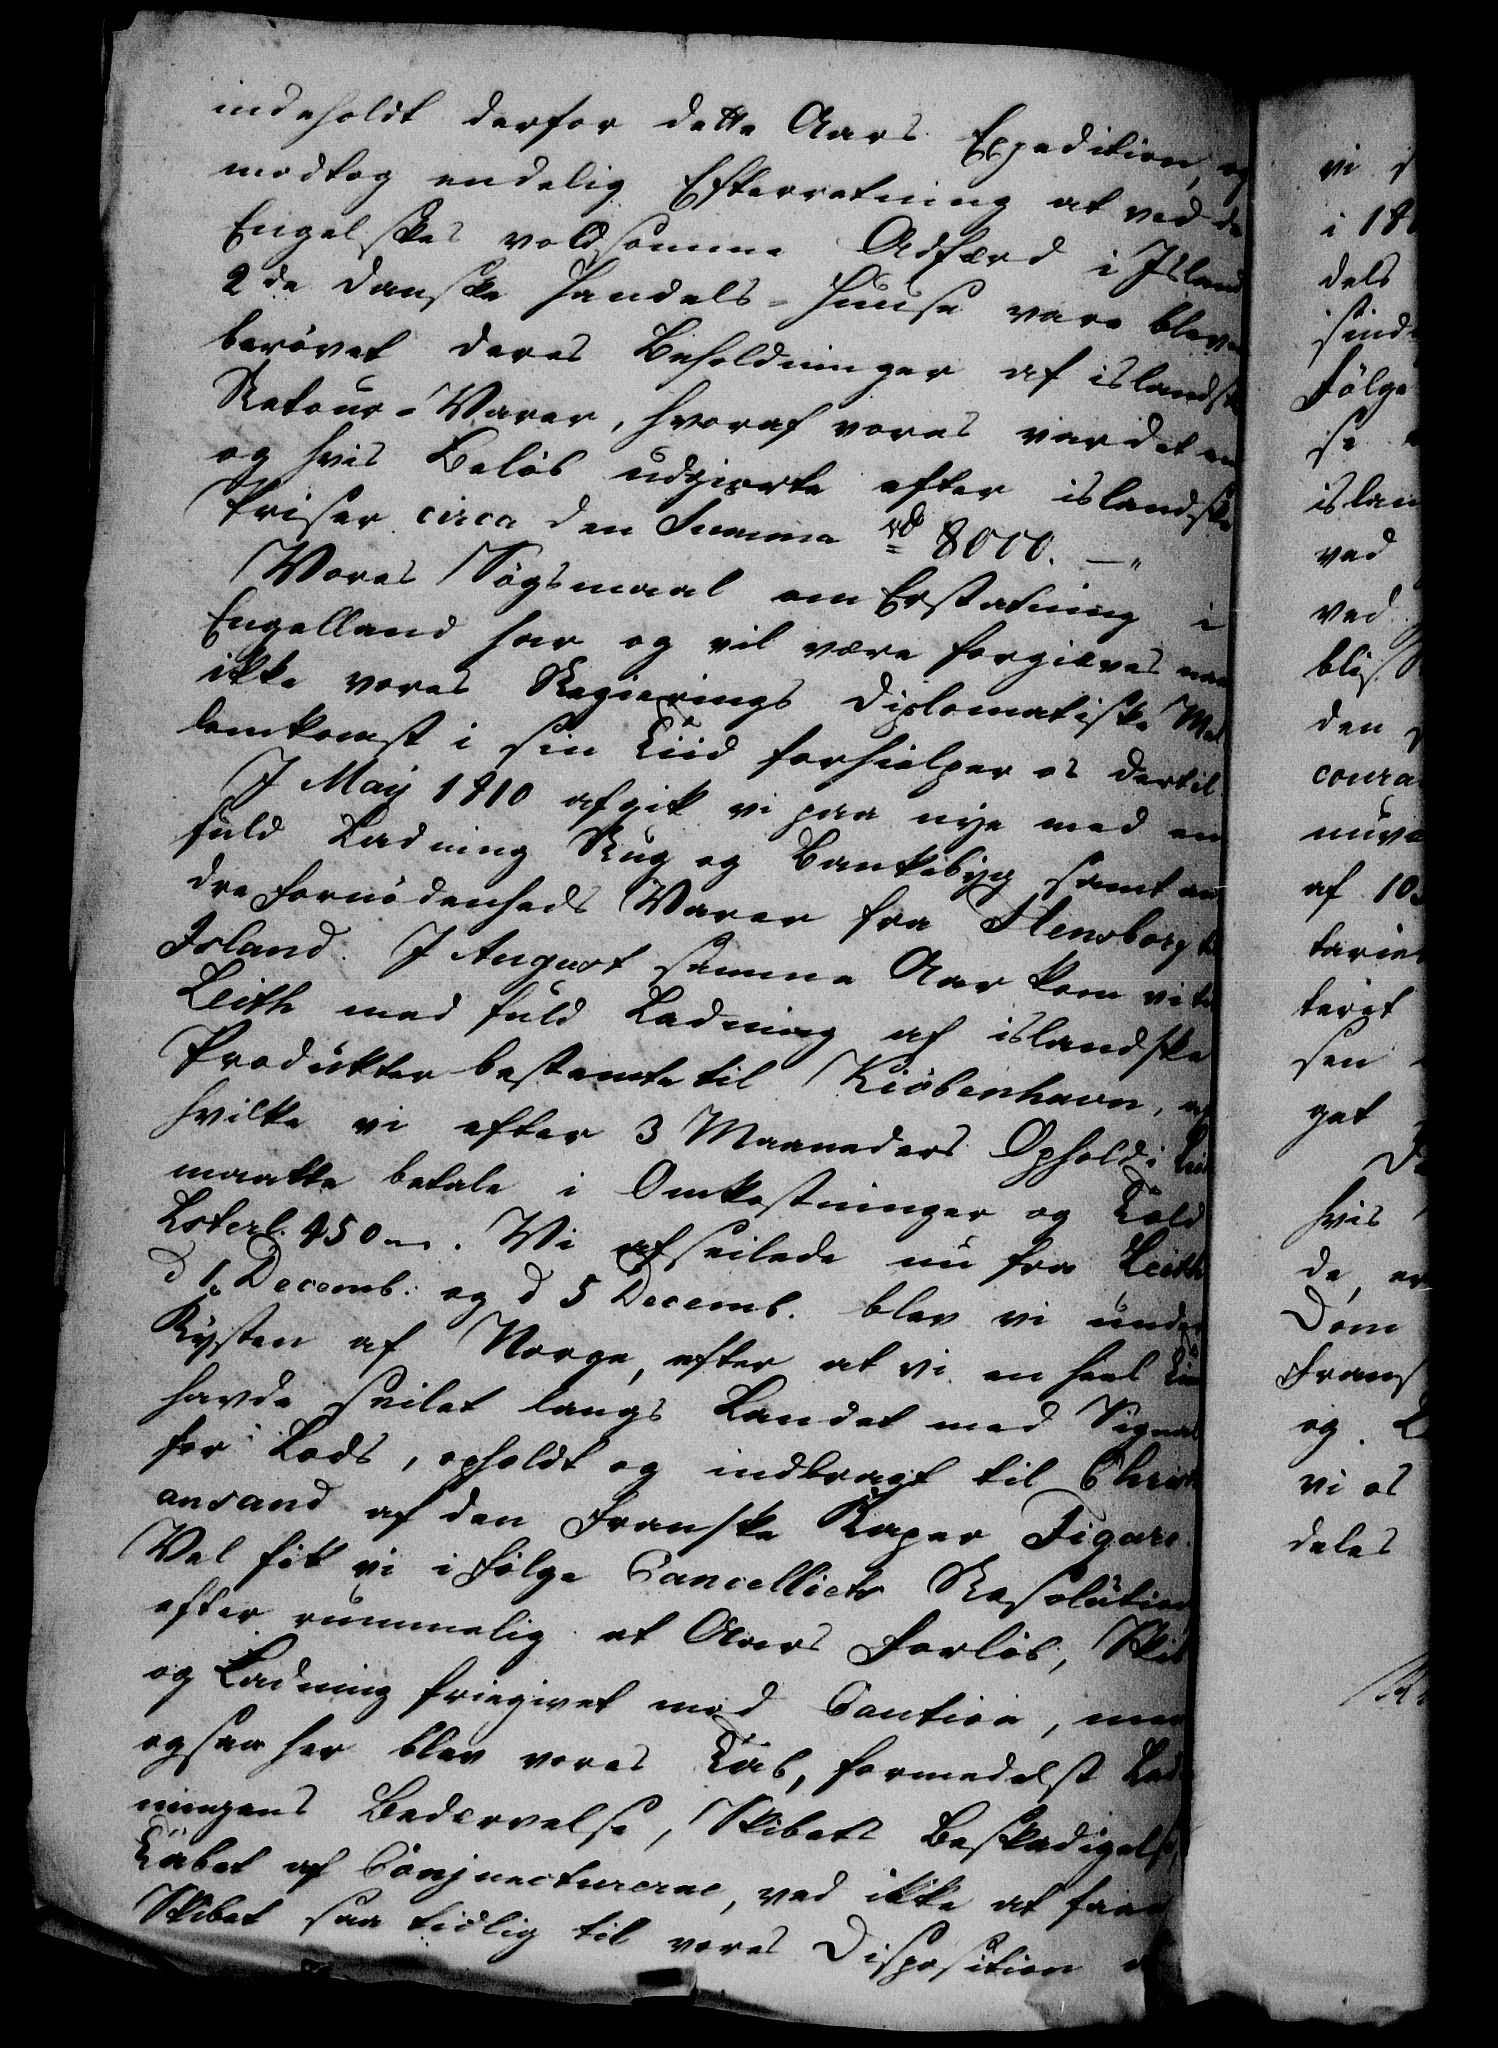 indeholdt derfor dette Aars Expedition, og
modtog endelig Efterretning at ved de
Engelskes voldsomme Adfærd i Island
2de danske Handels-Huuse vare bleven
berövet deres Beholdninger af islandske
Retour-Varer, hvoraf vores var det en
og hvis Belöb udgiorte efter islandske
Priser circa den Summa rd 8000. —"
Vores Sögsmaal om Erstatning i
Engelland har og vil være forgieves naar
ikke vores Regierings diplomatiske Mel
lemkomst i sin Tiid forhielper os dertil.
I Maij 1810 afgik vi paa nye med en
fuld Ladning Rug og Bankebyg samt an
dre Fornödenheds Varer fra Flensborg til
Island. I August samme Aar kom vi til
Leith med fuld Ladning af islandske
Produkter bestemte til Kiöbenhavn, af
hvilke vi efter 3 Maaneders Ophold i Leith
maatte betale i Omkostninger og Told
Lsterl. 450. Vi afseilede nu fra Leith
d 1. Decemb. og d 5 Decemb. blev vi under
Kysten af Norge, efter at vi en heel Tiid
havde seilet langs Landet med Signal
for Lods, opholdt og indbragt til Christi
ansand af den Franske Kaper Figaro.
Vel fik vi i fölge Cancelliets Resolution
efter rummelig et Aars Forlöb, Skib
og Ladning friegivet mod Caution, men
ogsaa her blev vores Tab, formedelst Lad
ningens Bedærvelse, Skibets Beskadigelse,
Tabet af Conjuncturerne, ved ikke at faae
Skibet saa tidlig til vores Disposition
vi
i 18
dels
sind
Fölge
se
islan
ved
ved
blis
den
coura
nuv
af 10
tarie
teret
sen
get
hvis
de, er
Dom
Frans
og
vi os
deles